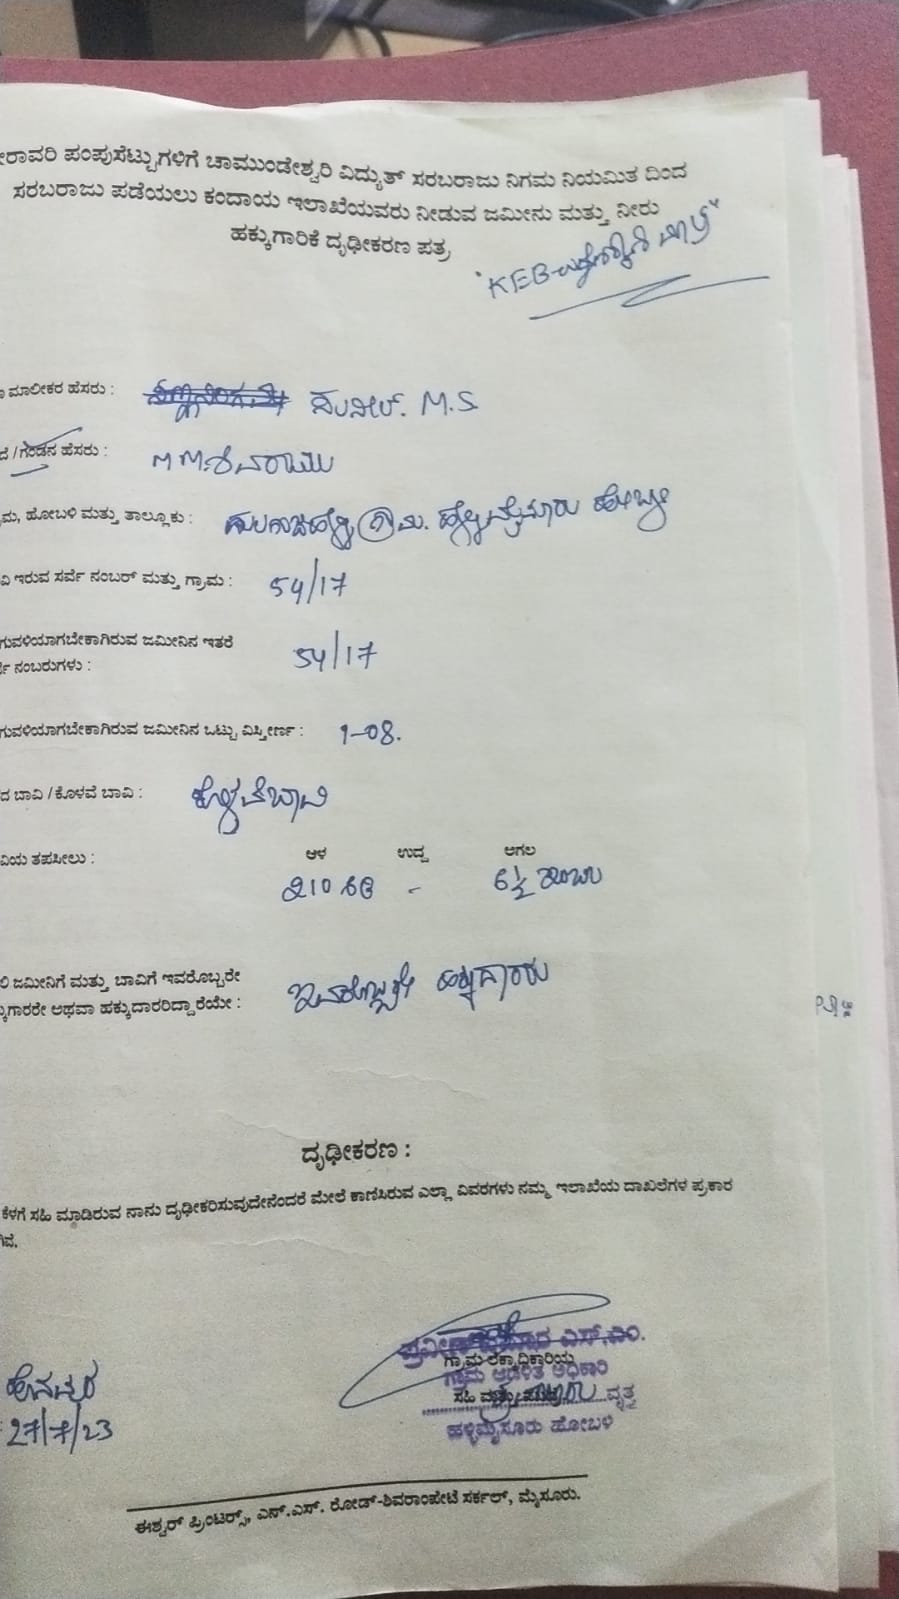 ರಾವರಿ ಪಂಪುಸೆಟ್ಟುಗಳಿಗೆ ಚಾಮುಂಡೇಶ್ವರಿ ವಿದ್ಯುತ್ ಸರಬರಾಜು ನಿಗಮ ನಿಯಮಿತ ದಿಂದ
ಸರಬರಾಜು ಪಡೆಯಲು ಕಂದಾಯ ಇಲಾಖೆಯವರು ನೀಡುವ ಜಮೀನು ಮತ್ತು ನೀರು
ಹಕ್ಕುಗಾರಿಕೆ ದೃಢೀಕರಣ ಪತ್ರ
KEB
ಮಾಲೀಕರ ಹೆಸರು : ಸುನೀಲ್. M.S
/ಗಂಡನ ಹೆಸರು :
ಮ, ಹೋಬಳಿ ಮತ್ತು ತಾಲ್ಲೂಕು : ಹಳ್ಳಿಮೈಸೂರು ಹೋಬಳಿ
ವಿ ಇರುವ ಸರ್ವೆ ನಂಬರ್ ಮತ್ತು ಗ್ರಾಮ : 54/17
ಗುವಳಿಯಾಗಬೇಕಾಗಿರುವ ಜಮೀನಿನ ಇತರೆ
ನಂಬರುಗಳು : 54/17
ಗುವಳಿಯಾಗಬೇಕಾಗಿರುವ ಜಮೀನಿನ ಒಟ್ಟು ವಿಸ್ತೀರ್ಣ : 1-08.
ದ ಬಾವಿ / ಕೊಳವೆ ಬಾವಿ : ಕೊಳವೆಬಾವಿ
ವಿಯ ತಪಸೀಲು : ಆಳ ಉದ್ದ ಅಗಲ
210 ಅಡಿ - 6½ ಇಂಚು
ಜಮೀನಿಗೆ ಮತ್ತು ಬಾವಿಗೆ ಇವರೊಬ್ಬರೇ
ಗಾರರೇ ಅಥವಾ ಹಕ್ಕುದಾರರಿದ್ದಾರೆಯೇ : ಇವರೊಬ್ಬರೇ ಹಕ್ಕುದಾರರು
ದೃಢೀಕರಣ :
ಕೆಳಗೆ ಸಹಿ ಮಾಡಿರುವ ನಾನು ದೃಢೀಕರಿಸುವುದೇನೆಂದರೆ ಮೇಲೆ ಕಾಣಿಸಿರುವ ಎಲ್ಲಾ ವಿವರಗಳು ನಮ್ಮ ಇಲಾಖೆಯ ದಾಖಲೆಗಳ ಪ್ರಕಾರ
ಎಸ್.ಎಂ.
ಗ್ರಾಮ ಲೆಕ್ಕಾಧಿಕಾರಿಯ
ಗ್ರಾಮ ಆಡಳಿತ ಅಧಿಕಾರಿ
ಸಹಿ ವೃತ್ತ
ಹಳ್ಳಿಮೈಸೂರು ಹೋಬಳಿ
27/7/23
ಈಶ್ವರ್ ಪ್ರಿಂಟರ್ಸ್, ಎನ್.ಎಸ್. ರೋಡ್-ಶಿವರಾಂಪೇಟೆ ಸರ್ಕಲ್, ಮೈಸೂರು.